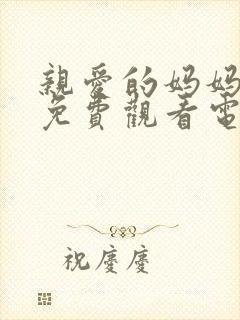 親愛的妈妈
免費觀看電
祝慶慶